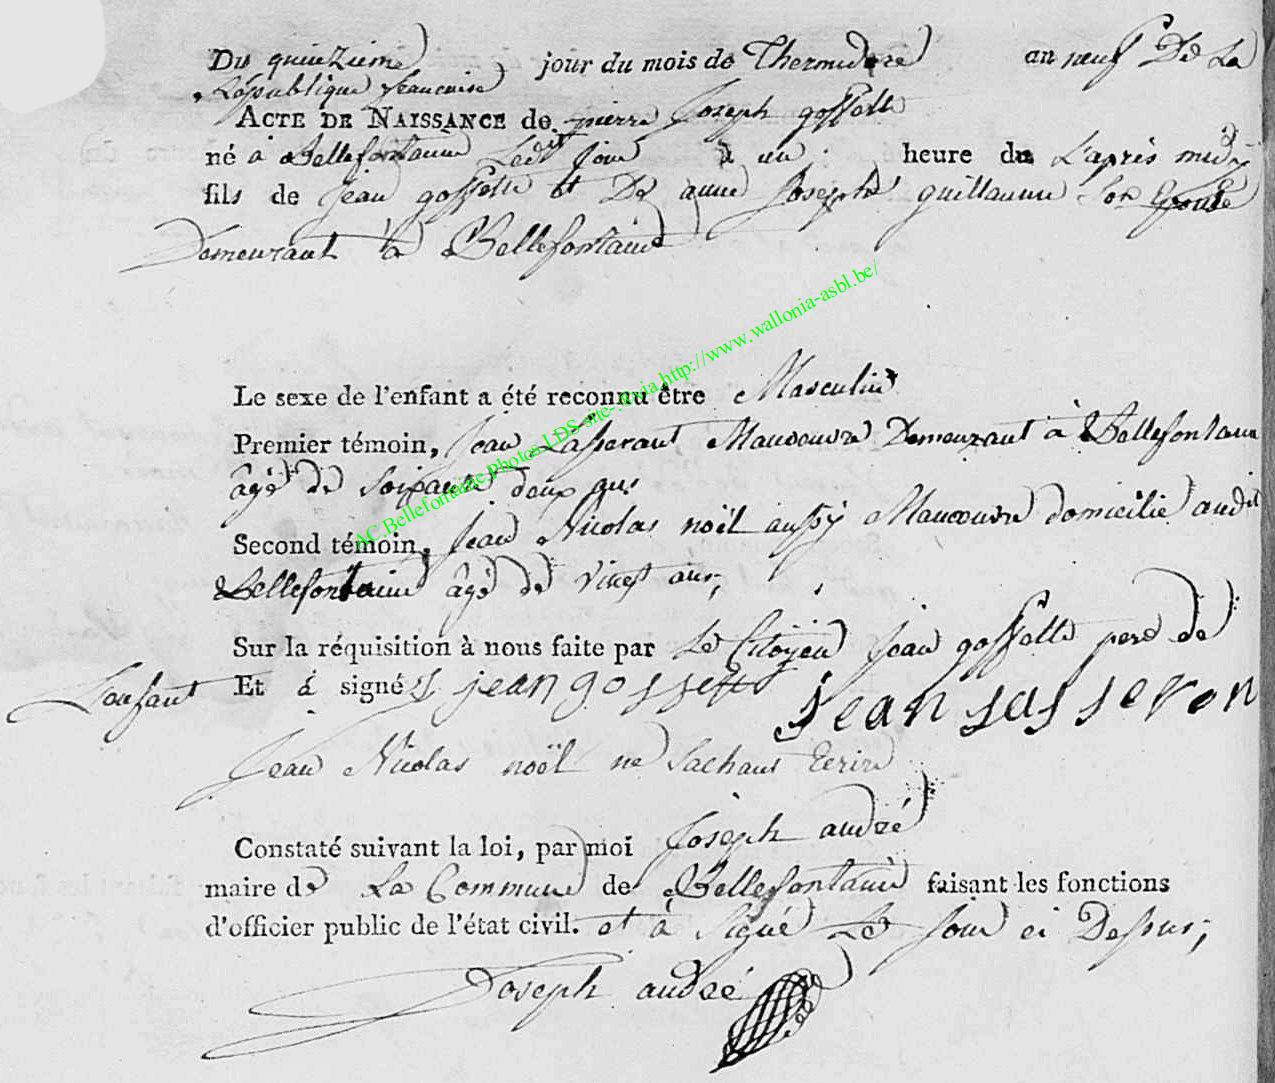 Du quinzieme jour du mois de Thermidore an neuf De La
Republique francaise
ACTE DE NAISSANCE de pierre Joseph gosselle
né à Bellefontaine Ledit Jour à un heure du L'après midy
fils de Jean gosselle et De anne Josephe guillaume son Epouse
Demeurant à Bellefontaine
Le sexe de l'enfant a été reconnu être Masculin
Premier témoin, Jean Lasserant Manoeuvre Demeurant à Bellefontaine
âgé de soixante deux ans
Second témoin, Jean Nicolas noël aussy Manoeuvre domicilié audit
Bellefontaine âgé de vingt ans;
Sur la réquisition à nous faite par Le Citoÿen Jean gosselle pere de
L'enfant Et à signé jean gosselle jean lasseron
Jean Nicolas noël ne Sachant Ecrire
Constaté suivant la loi, par moi Joseph andré
maire de La Commune de Bellefontaine faisant les fonctions
d'officier public de l'état civil. et à Signé Le Jour ci Dessus;
Joseph andré
AC Bellefontaine Photos LDS site- via http://www.wallonia-asbl.be/